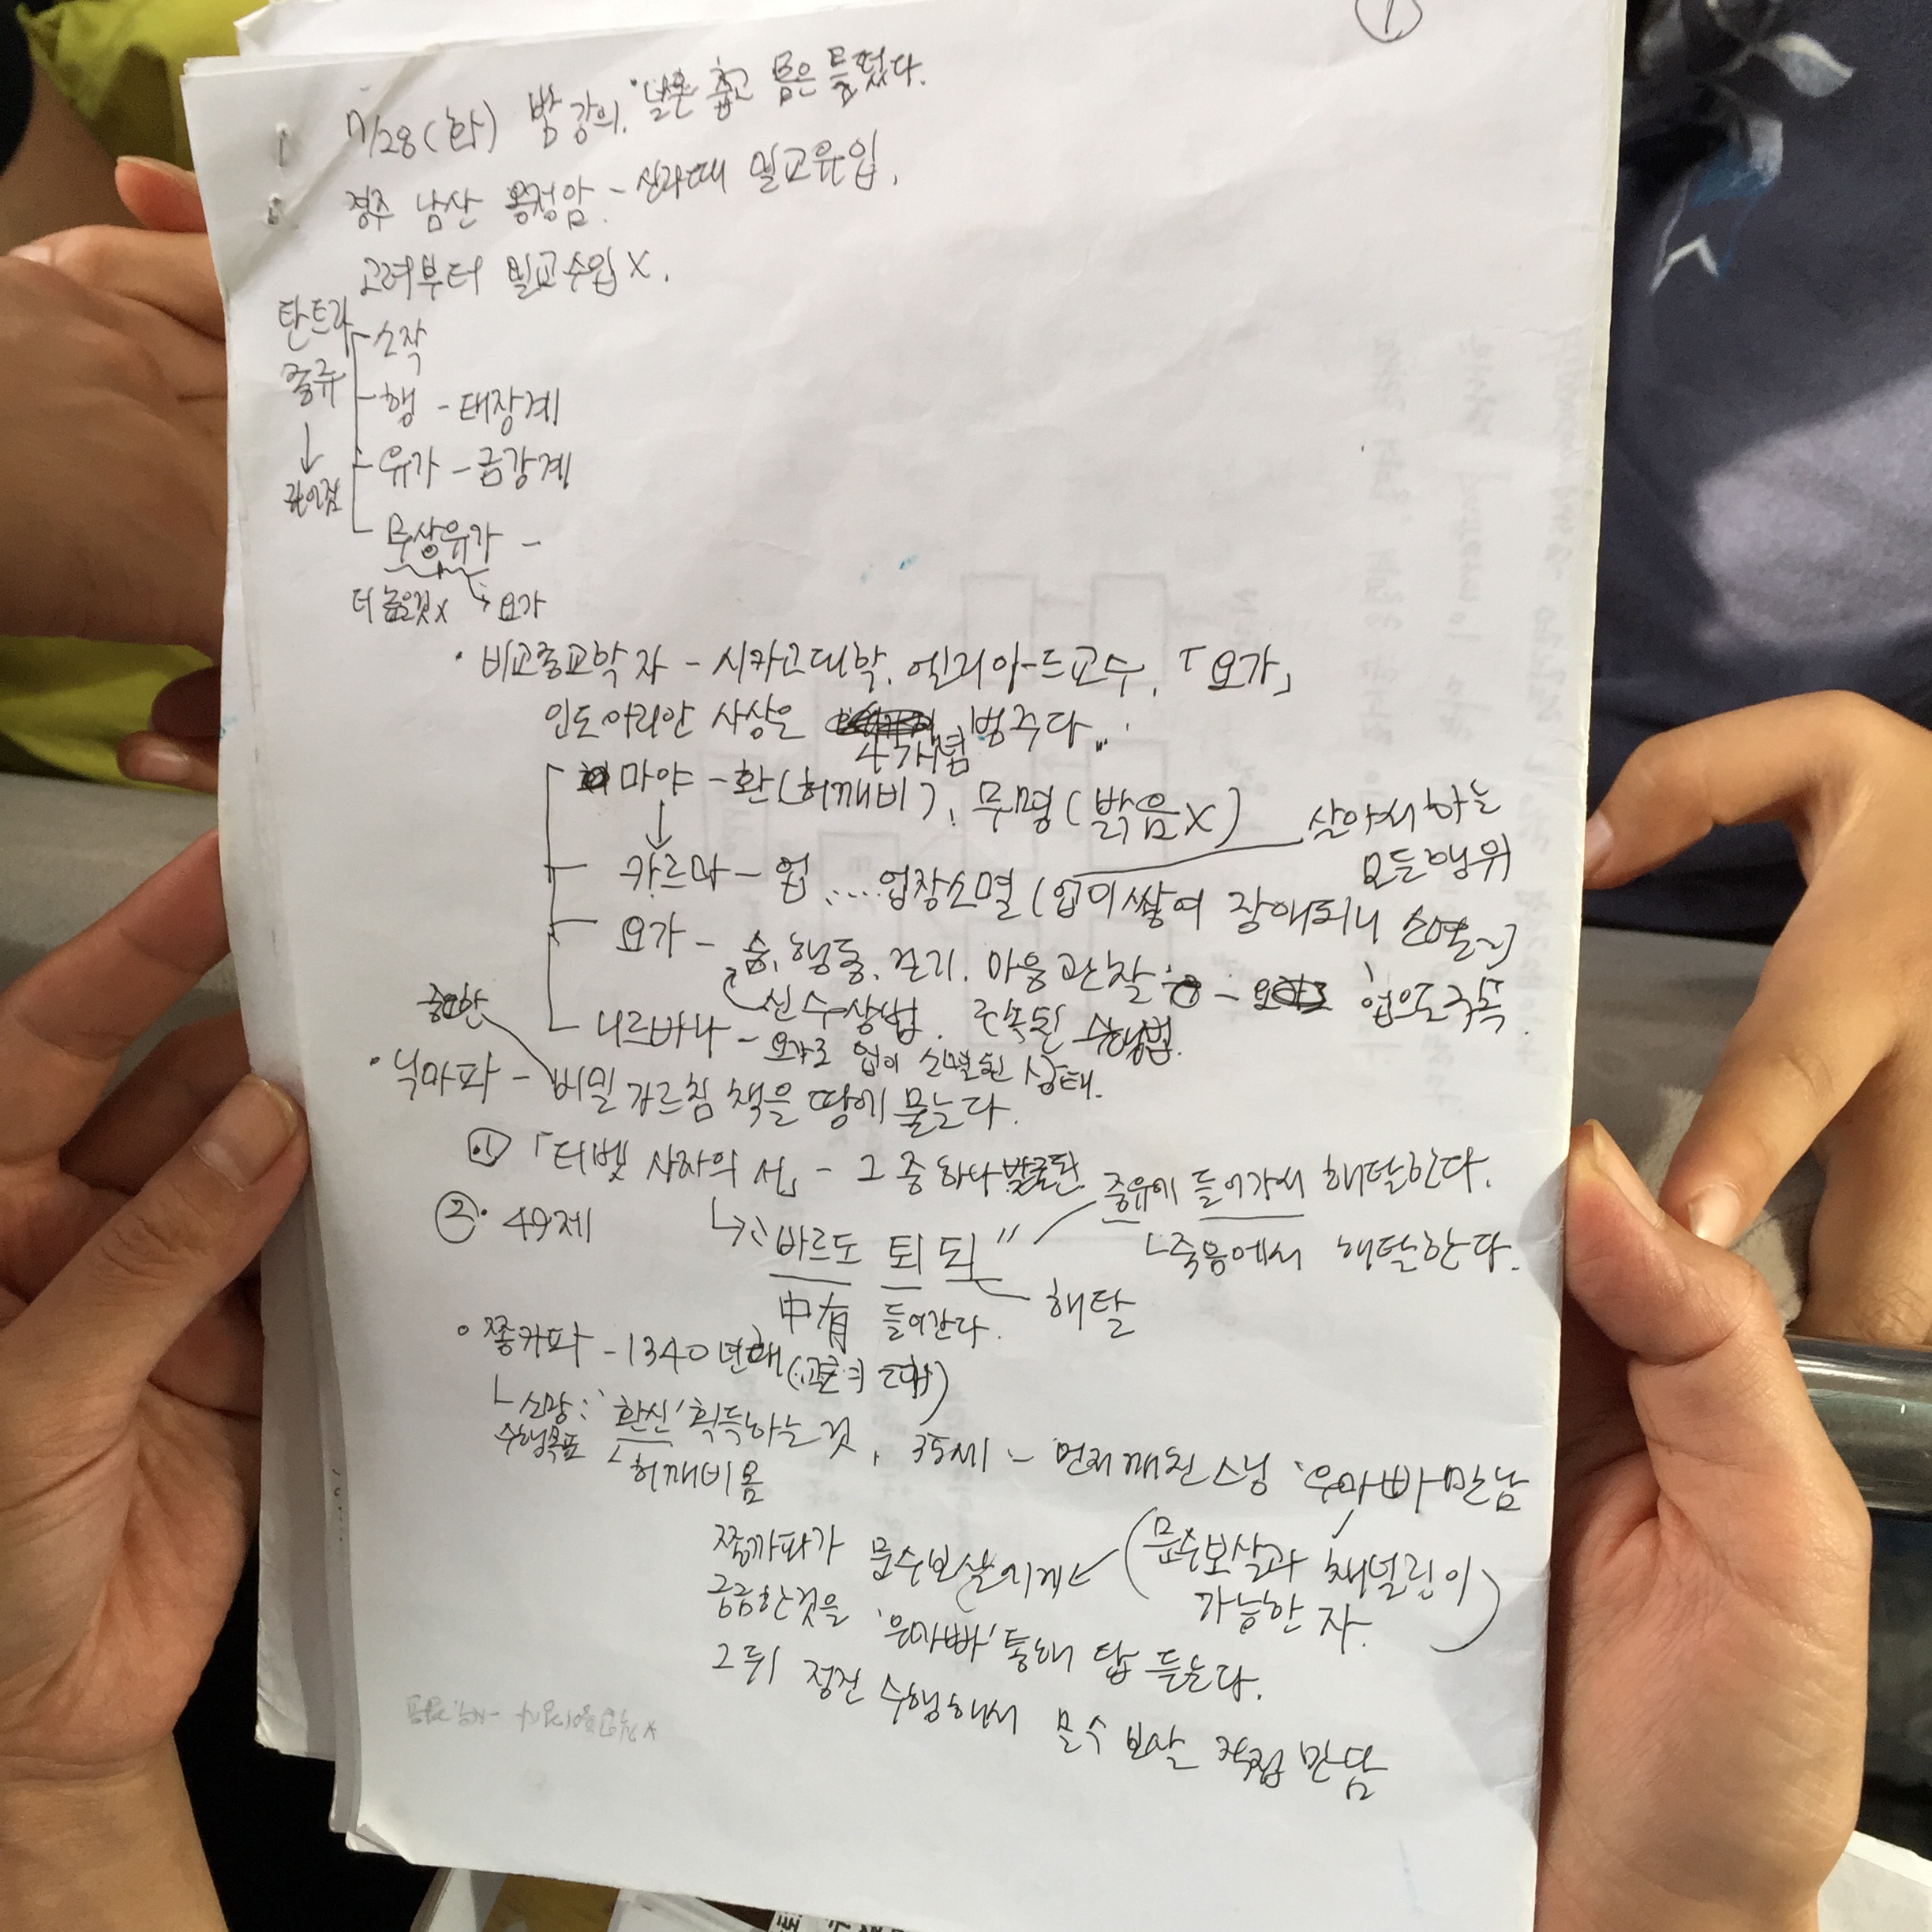 ①
7/28(화) 밤 강의. 춥고 몸은 틀렸다.
경주 남산 용정암 - 신라때 밀교유입.
고려부터 밀교수입 X.
탄트라 종류
소작
행 - 태장계
유가 - 금강계
무상유가 -
더 높은것 X → 요가
· 비교종교학자 - 시카고대학. 엘리아드교수. 「요가」
인도아리안 사상은 4개념 범주다
마야 - 환(허깨비), 무명(밝음X)
살아서 하는 모든행위
↓
카르마 - 업 .... 업장소멸 (업이쌓여 장애되니 소멸~)
요가 - 숨, 행동, 걷기. 마음관찰 - 업으로 구속
신수상법. 구속된 수행법.
니르바나 - 요가로 업이 소멸된 상태.
중요한
· 닉마파 - 비밀 가르침 책을 땅에 묻는다.
① 「티벳 사자의 서」 - 그 중 하나 발굴된
②· 49제
↳ "바르도 퇴 되" 중유에 들어가서 해탈한다.
└죽음에서 해탈한다.
中有 들어간다. 해탈
◦ 쫑카파 - 1340년대
└ 소망: '환신' 획득하는 것, 35세 - 먼저깨친스님 '우마빠 만남
수행목표
허깨비몸
(문수보살과 채널링이 가능한 자.)
쫑까파가 문수보살에게
궁금한것을 '우마빠' 통해 답 듣는다.
그뒤 정진 수행해서 문수보살 직접 만남